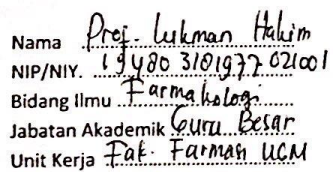 Nama Prof. Lukman Hakim
NIP/NIY. 19480 3181977 021001
Bidang Ilmu Farmakologi
Jabatan Akademik Guru Besar
Unit Kerja Fak. Farmasi UGM